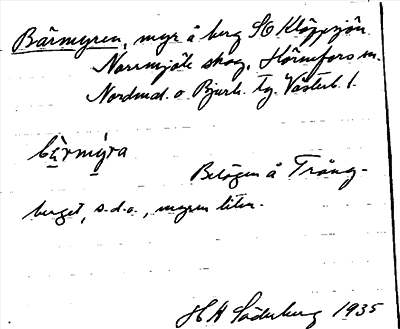 Bärmyren, myr å berg SO Kläppsjön
Norrmjöle skog, Hörnefors sn.
Nordmal. o Bjurh. tg. Västerb. l.
bærmýra
Belägen å Trång-
berget, s.d.o., myren liten.
H A Söderberg 1935